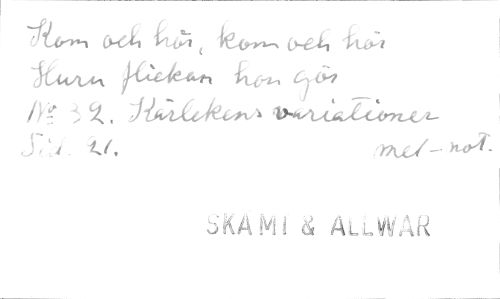 Kom och hör, kom och hör
Huru flickan hon gör
No 32. Kärlekens variationer
Sid. 21. mel-not.
SKÄMT & ALLWAR